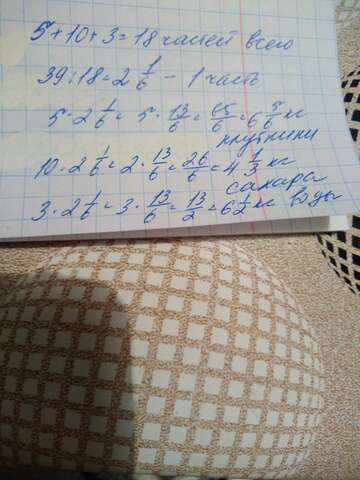 5+10+3=18 частей всего
39:18=2 1/6 - 1 часть
5·2 1/6 = 5·13/6 = 65/6 = 6 5/6 кг
клубники
10·2 1/6 = 2·13/6 = 26/6 = 4 1/3 кг
сахара
3·2 1/6 = 3·13/6 = 13/2 = 6 1/2 кг воды